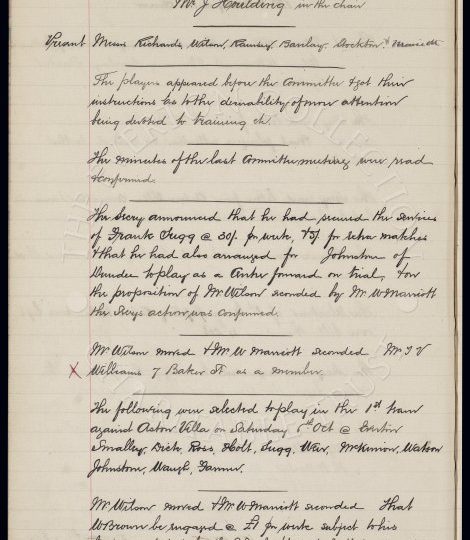 Mr J Houlding in the chair
Present Messrs Richards, Wilson, Ramsey Barclay Stockton & Marriott
The players appeared before the Committee & got their
instructions as to the desirability of more attention
being devoted to training etc.
The minutes of the last Committee meeting were read
& confirmed.
The Secry announced that he had secured the services
of Frank Sugg @ 30/- per week, & 5/- for extra matches
& that he had also arranged for Johnstone of
Dundee to play as a Center forward on trial, & on
the proposition of Mr Wilson seconded by Mr W Marriott
the Secys action was confirmed.
Mr Wilson moved & Mr W Marriott seconded Mr T V
X Williams 7 Baker St as a member.
The following were selected to play in the 1st team
against Aston Villa on Saturday Oct @ Everton
Smalley, Dick, Ross, Holt, Sugg, Weir, McKinnon, Watson
Johnstone, Waugh, Farmer.
Mr Wilson moved & Mr W Marriott seconded That
W Brown be engaged @ £1 per week subject to his